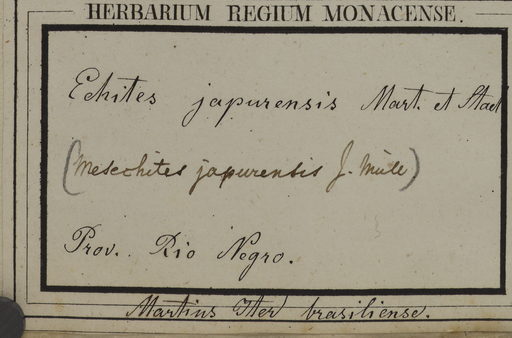 HERBARIUM REGIUM MONACENSE.
Echites japurensis Mart. et Stad
(Mesechites japurensis J. Müll)
Prov. Rio Negro.
Martius Iter brasiliense.